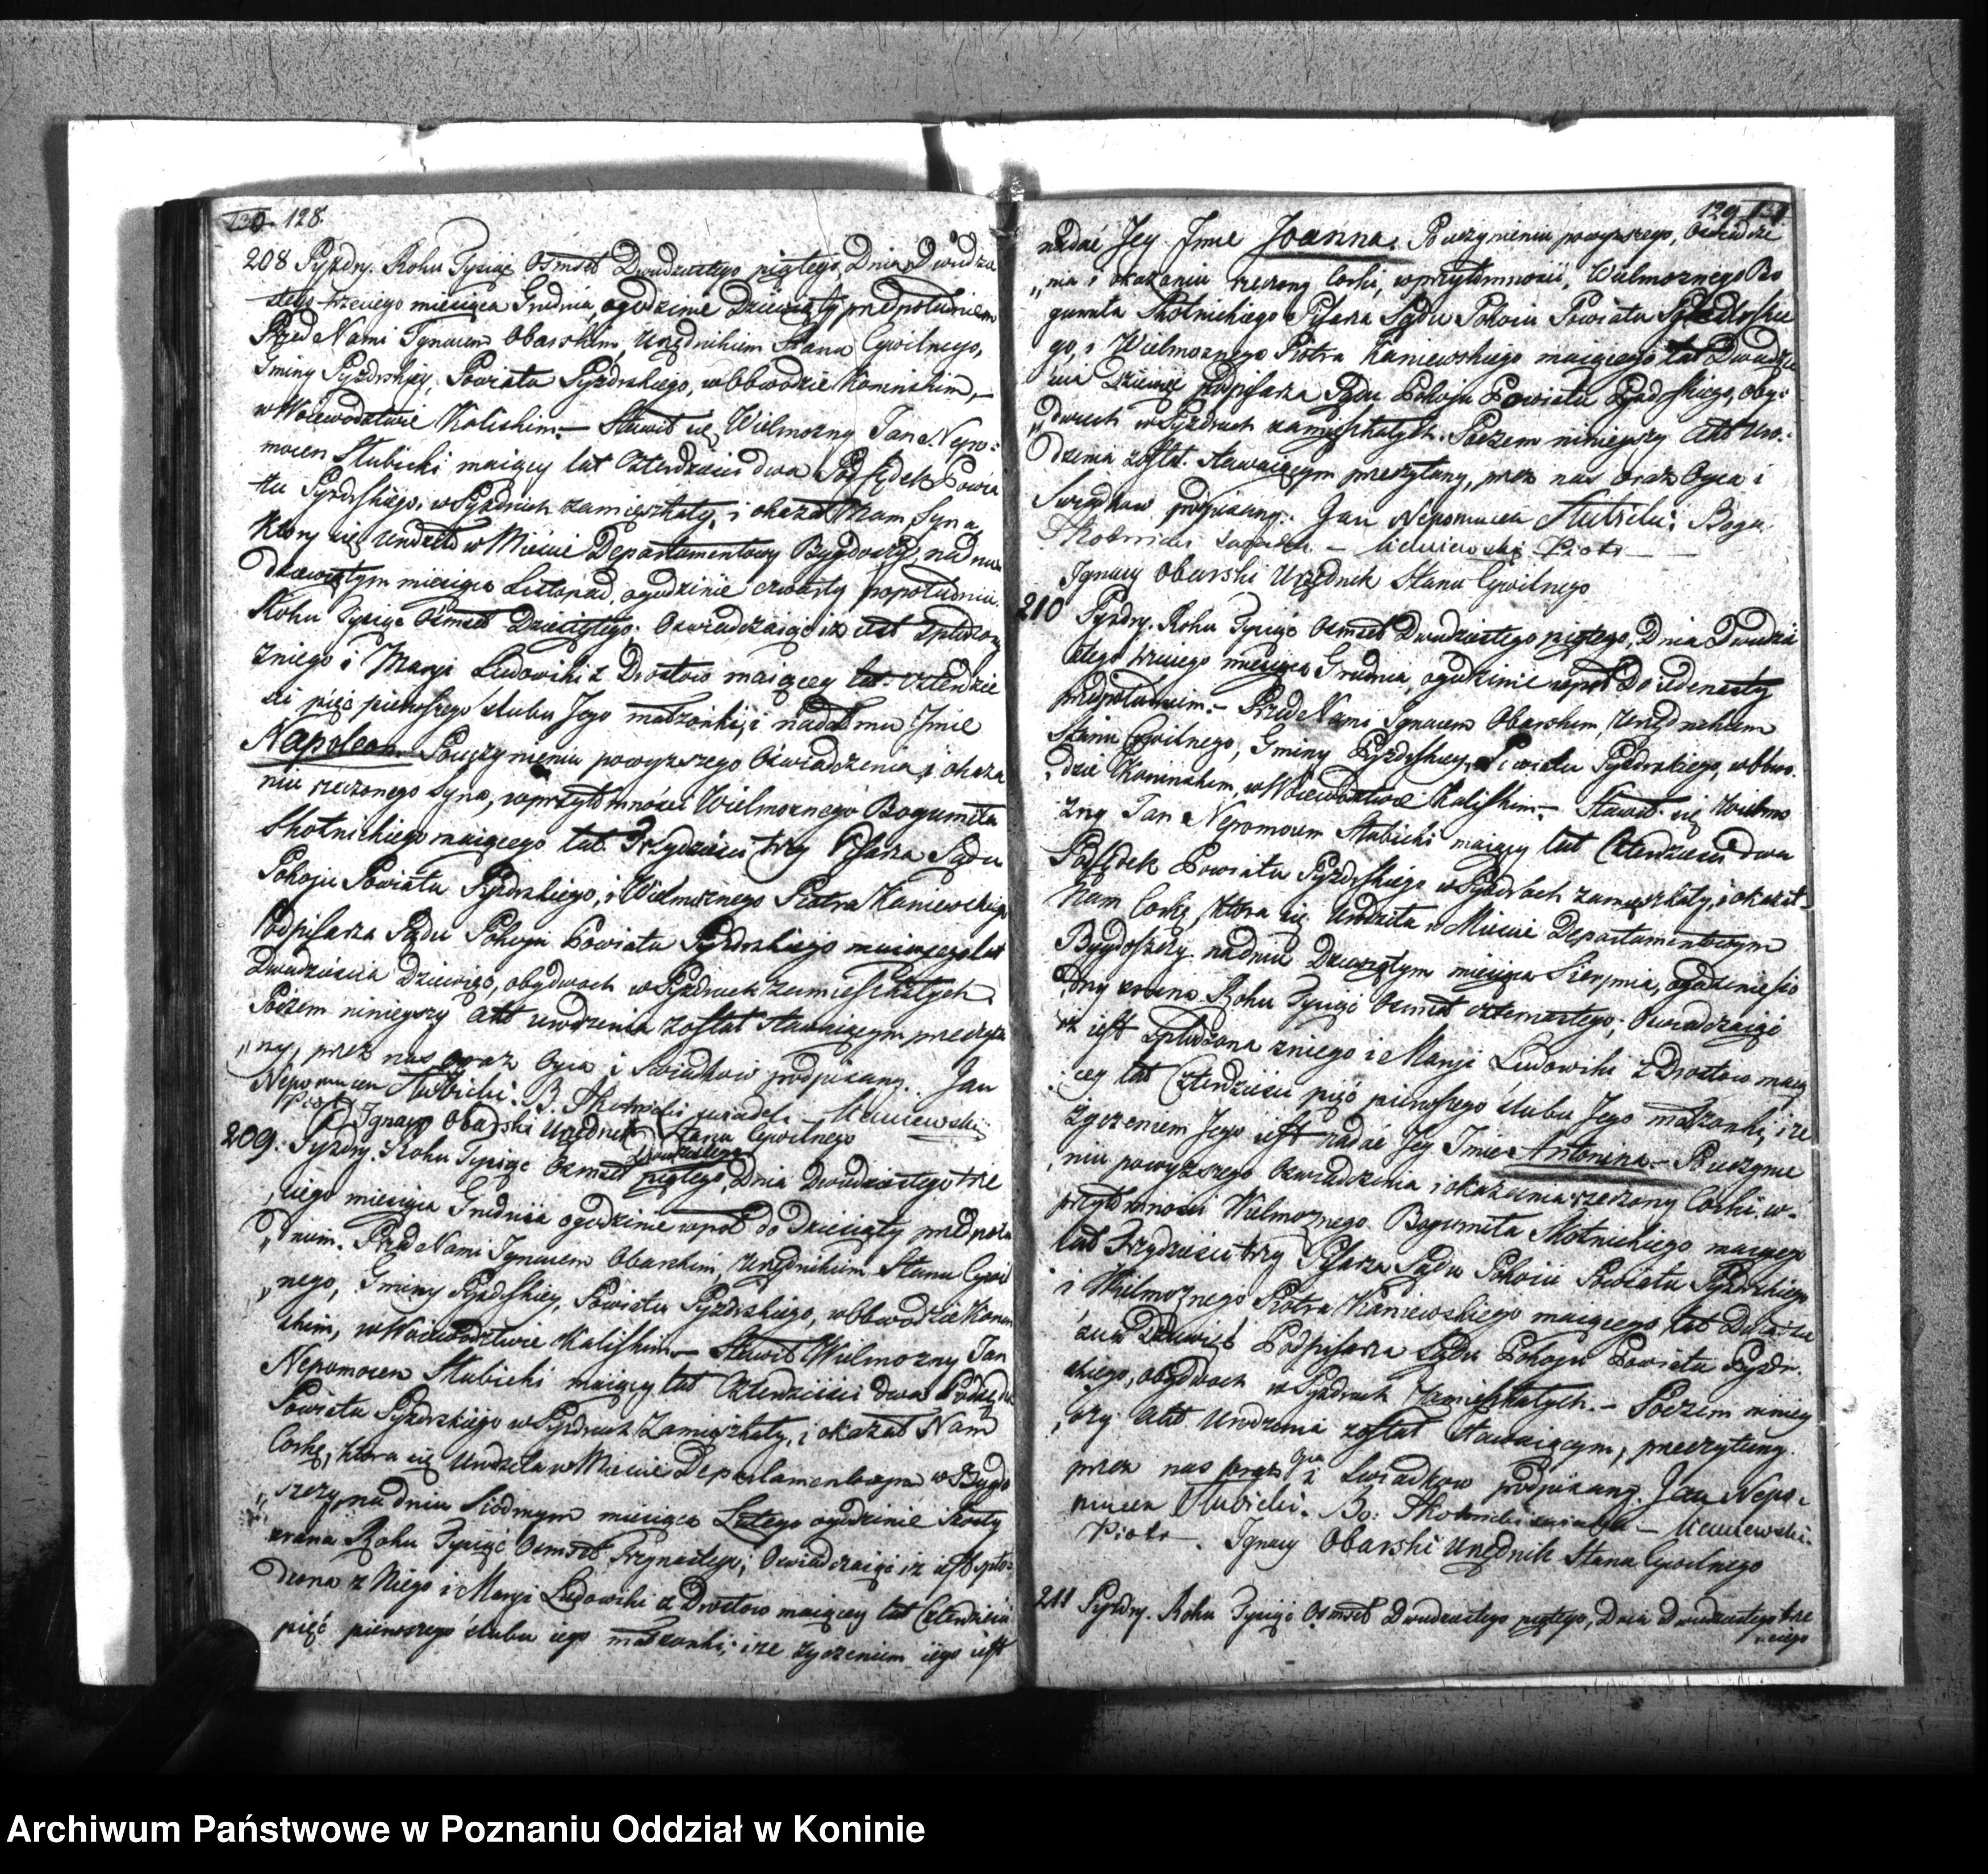 130 128.
208 Pyzdry. Roku Tysiąc Osmset Dwudziestego piątego, Dnia Dwudzie
stego trzeciego miesiąca Grudnia, ogodzinie Dziewiąty przedpołudniem
Przed Nami Ignacem Obarskim, Urzędnikiem Stanu Cywilnego,
Gminy Pyzdrskiey, Powiatu Pyzdrskiego, w Obwodzie Konińskim,
w Woiewodztwie Kaliskim. — Stawił się, Wielmożny Jan Nepo:
mocen Słubicki maiący lat Czterdzieści dwa Podsędek Powia
tu Pyzdrskiego, w Pyzdrach zamieszkały, i okazał Nam Syna,
Który się Urodził w Mieście Departamentowy Bydgoszczy, nadniu
Dziewiątym miesiąca Listopad. ogodzinie czwarty popołudniu,
Roku Tysiąc Osmset Dziesiątego; Oswiadczaiąc iż iest spłodzony
zniego i Maryi Ludowiki z Drostow maiącey lat Czterdzie
ści pięć pierwszego ślubu Jego małżonki, i nadał mu Jmie
Napoleon. Pouczynieniu powyższego Oświadczenia, i okaza
niu rzeczonego syna, w przytomności Wielmożnego Bogumiła
Skotnickiego maiącego lat Trzydzieści trzy Pisarza Sądu
Pokoju Powiatu Pyzdrskiego, i Wielmożnego Piotra Kaniewskiego
Podpisarza Sądu Pokoju Powiatu Pyzdrskiego maiącego lat
Dwadzieścia Dziewięć, obydwoch w Pyzdrach zamieszkałych.
Poczem niniejszy Akt urodzenia został Stawaiącym przeczyta
ny, przez nas oraz Oyca i Swiadkow podpisany. Jan
Nepomucen Słubicki. B. Skotnicki swiadek — Kaniewski
Piotr Ignacy Obarski Urzędnik Stanu Cywilnego
209. Pyzdry. Roku Tysiąc Osmset Dwudziestego piątego, Dnia Dwudziestego trze
ciego miesiąca Grudnia ogodzinie wpoł do Dziesiąty przedpołu
dniem. Przed Nami Ignacem Obarskim, Urzędnikiem Stanu Cywil
nego, Gminy Pyzdrskiey, Powiatu Pyzdrskiego, w Obwodzie Konin
skim, w Woiewodztwie Kaliskim. — Stawił Wielmożny Jan
Nepomocen Słubicki maiący lat Czterdzieści dwa Podsędek
Powiatu Pyzdrskiego w Pyzdrach Zamieszkały, i okazał Nam
Corkę, ktora się Urodziła w Mieście Departamentowym w Bydgo
szczy, na dniu Siodmym miesiąca Lutego ogodzinie szosty
zrana Roku Tysiąc Osmset Trzynastego; Oswiadczaiąc iż iest spło:
dzona z Niego i Maryi Ludowiki z Drostow maiącey lat Czterdzieści
pięć pierwszego ślubu iego małżonki; i że życzeniem iego iest
129 131
nadać Jey Jmie Joanna. Pouczynieniu powyższego, Oswiadcze
nia i okazaniu rzeczony Corki, w przytomności, Wielmożnego Bo
gumiła Skotnickiego Pisarza Sądu Pokoiu Powiatu Pyzdrskie
go, i Wielmożnego Piotra Kaniewskiego maiącego lat Dwadzie
ścia Dziewięć Podpisarza Sądu Pokoju Powiatu Pyzdrskiego, oby:
dwuch w Pyzdrach zamieszkałych. Poczem niniejszy Akt Uro:
dzenia został Stawaiącym przeczytany, przez nas oraz Oyca i
Swiadkow podpisany. Jan Nepomucen Słubicki; Bogu.
Skotnicki swiadek — Kaniewski Piotr —
Ignacy Obarski Urzędnik Stanu Cywilnego
210 Pyzdry. Roku Tysiąc Osmset Dwudziestego piątego, Dnia Dwudzie
stego trzeciego miesiąca Grudnia, ogodzinie wpoł Do Jedenasty
przedpołudniem. — Przed Nami Ignacem Obarskim, Urzędnikiem
Stanu Cywilnego, Gminy Pyzdrskiey, Powiatu Pyzdrskiego, w Obwo.
dzie Konińskim, w Woiewodztwie Kaliskim. — Stawił się Wielmo
żny Jan Nepomocen Słubicki maiący lat Czterdzieści dwa
Podsędek Powiatu Pyzdrskiego w Pyzdrach zamieszkały, i okazał
Nam Corkę, ktora się Urodziła w Mieście Departamentowym
Bydgoszczy nadniu Dziewiątym miesiąca Sierpnia, ogodzinie sio
dmy zrana Roku Tysiąc Osmset czternastego; Oswiadczaiąc
iż iest spłodzona zniego i Maryi Ludowiki z Drostow maią
cey lat Czterdzieści pięć pierwszego ślubu Jego małżonki, i że
życzeniem Jego iest nadać Jey Jmie Antonina — Pouczynie
niu powyższego Oswiadczenia i okazania rzeczony Corki, w
przytomności Wielmożnego Bogumiła Skotnickiego maiącego
lat Trzydzieści trzy Pisarza Sądu Pokoiu Powiatu Pyzdrskiego
i Wielmożnego Piotra Kaniewskiego maiącego lat Dwadzie
ścia Dziewięć Podpisarza Sądu Pokoju Powiatu Pyzdr.
skiego, obydwoch w Pyzdrach Zamieszkałych. — Poczem niniey
szy Akt Urodzenia został Stawaiącym, przeczytany.
przez nas oraz Oyca i Swiadkow podpisany. Jan Nepo.
mucen Słubicki. Bo: Skotnicki swiadek — Kaniewski.
Piotr — Ignacy Obarski Urzędnik Stanu Cywilnego
211 Pyzdry. Roku Tysiąc Osmset Dwudziestego piątego, Dnia Dwudziestego trze
ciego
Archiwum Państwowe w Poznaniu Oddział w Koninie